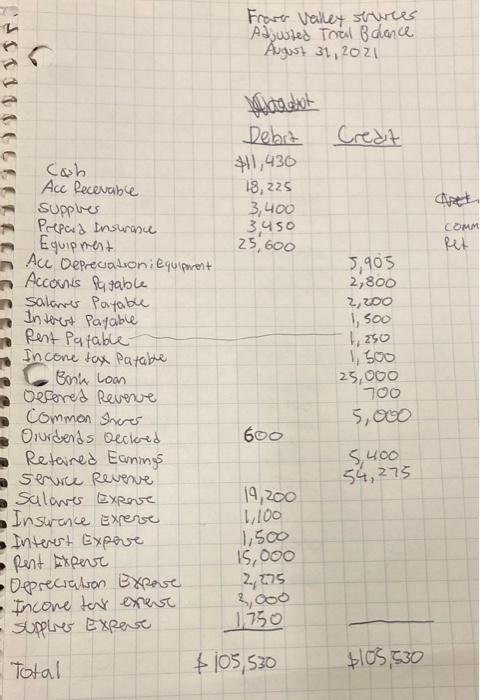 Fraser Valley services
Adjusted Trial Balance
August 31, 2021
Debit Credit
Cash $11,430
Acc Receivable 18,225
Supplies 3,400
Prepaid Insurance 3,450
comm
Equipment 25,600
Ret
Acc Depreciation: Equipment 5,905
Accounts Payable 2,800
Salaries Payable 2,200
Interest Payable 1,500
Rent Payable 1,250
Income tax Payable 1,500
Bank Loan 25,000
Deferred Revenue 700
Common Shares 5,000
Dividends Declared 600
Retained Earnings 5,400
Service Revenue 54,275
Salaries Expense 19,200
Insurance Expense 1,100
Interest Expense 1,500
Rent Expense 15,000
Depreciation Expense 2,275
Income tax expense 2,000
Supplies Expense 1,750
Total $105,530 $105,530